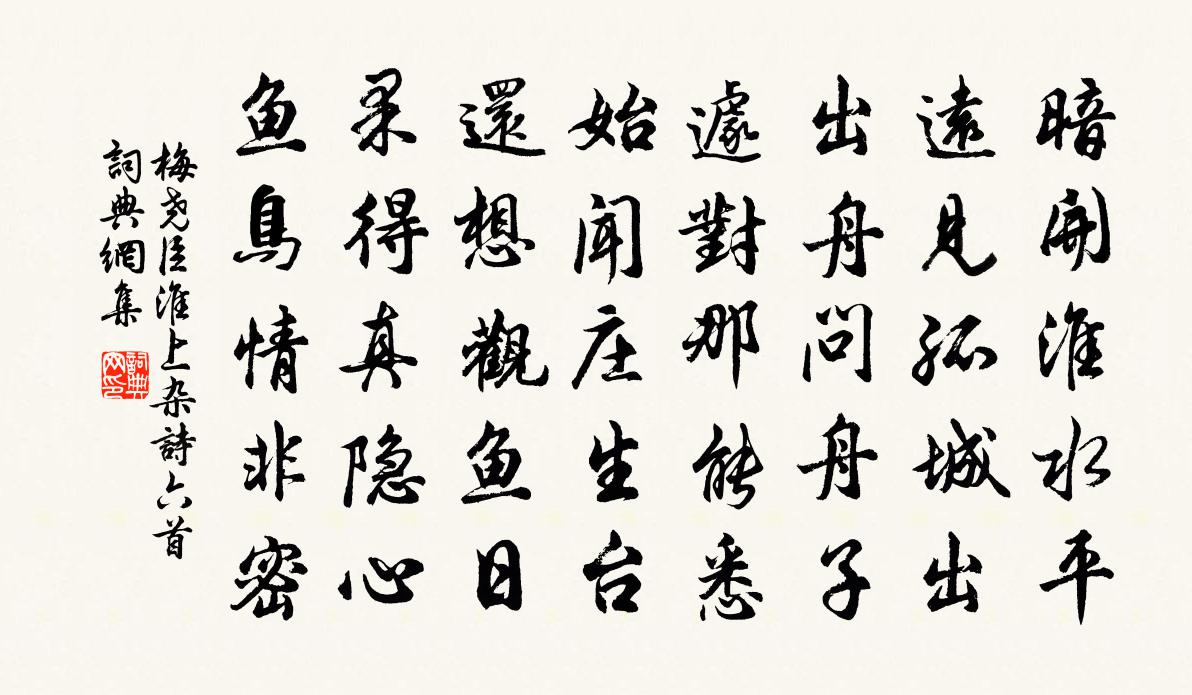 暗開淮水平
遠見孤城出
出舟問舟子
遽對那能悉
始聞庄生台
還想觀鱼日
果得真隐心
鱼鳥情非密
梅尧臣淮上杂詩六首
詞典網集
詞典网印